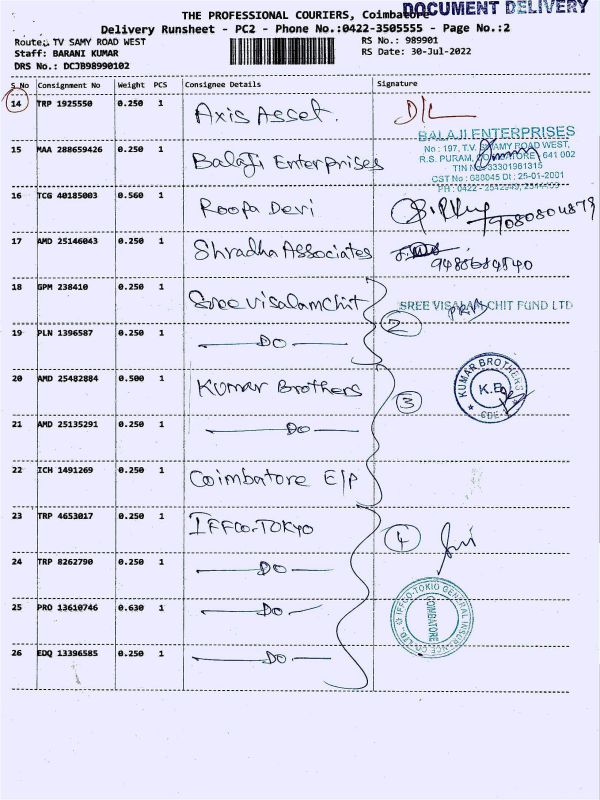 DOCUMENT DELIVERY
THE PROFESSIONAL COURIERS, Coimbatore
Delivery Runsheet - PC2 - Phone No.:0422-3505555 - Page No.:2
Route: TV SAMY ROAD WEST
RS No.: 989901
Staff: BARANI KUMAR
RS Date: 30-Jul-2022
DRS No.: DCJB98990102
S No Consignment No Weight PCS Consignee Details Signature
14 TRP 1925550 0.250 1 Axis Asset. D/L
BALAJI ENTERPRISES
No : 197, T.V. SWAMY ROAD WEST,
R.S. PURAM, COIMBATORE 641 002
TIN No 33301961315
CST No : 688045 Dt : 25-01-2001
15 MAA 288659426 0.250 1 Balaji Enterprises
16 TCG 40185003 0.560 1 Roopa Devi
17 AMD 25146043 0.250 1 Shradha Associates
18 GPM 238410 0.250 1 Sree Visalam Chit SREE VISALAM CHIT FUND LTD
2
19 PLN 1396587 0.250 1 DO
20 AMD 25482884 0.500 1 Kumar Brothers KUMAR BROTHERS K.B CBE
3
21 AMD 25135291 0.250 1 DO
22 ICH 1491269 0.250 1 Coimbatore E/P
23 TRP 4653017 0.250 1 IFFCO-TOKYO
4
24 TRP 8262790 0.250 1 DO
25 PRO 13610746 0.630 1 DO
IFFCO-TOKIO GENERAL INSURENCE CO.LTD. COIMBATORE
26 EDQ 13396585 0.250 1 DO